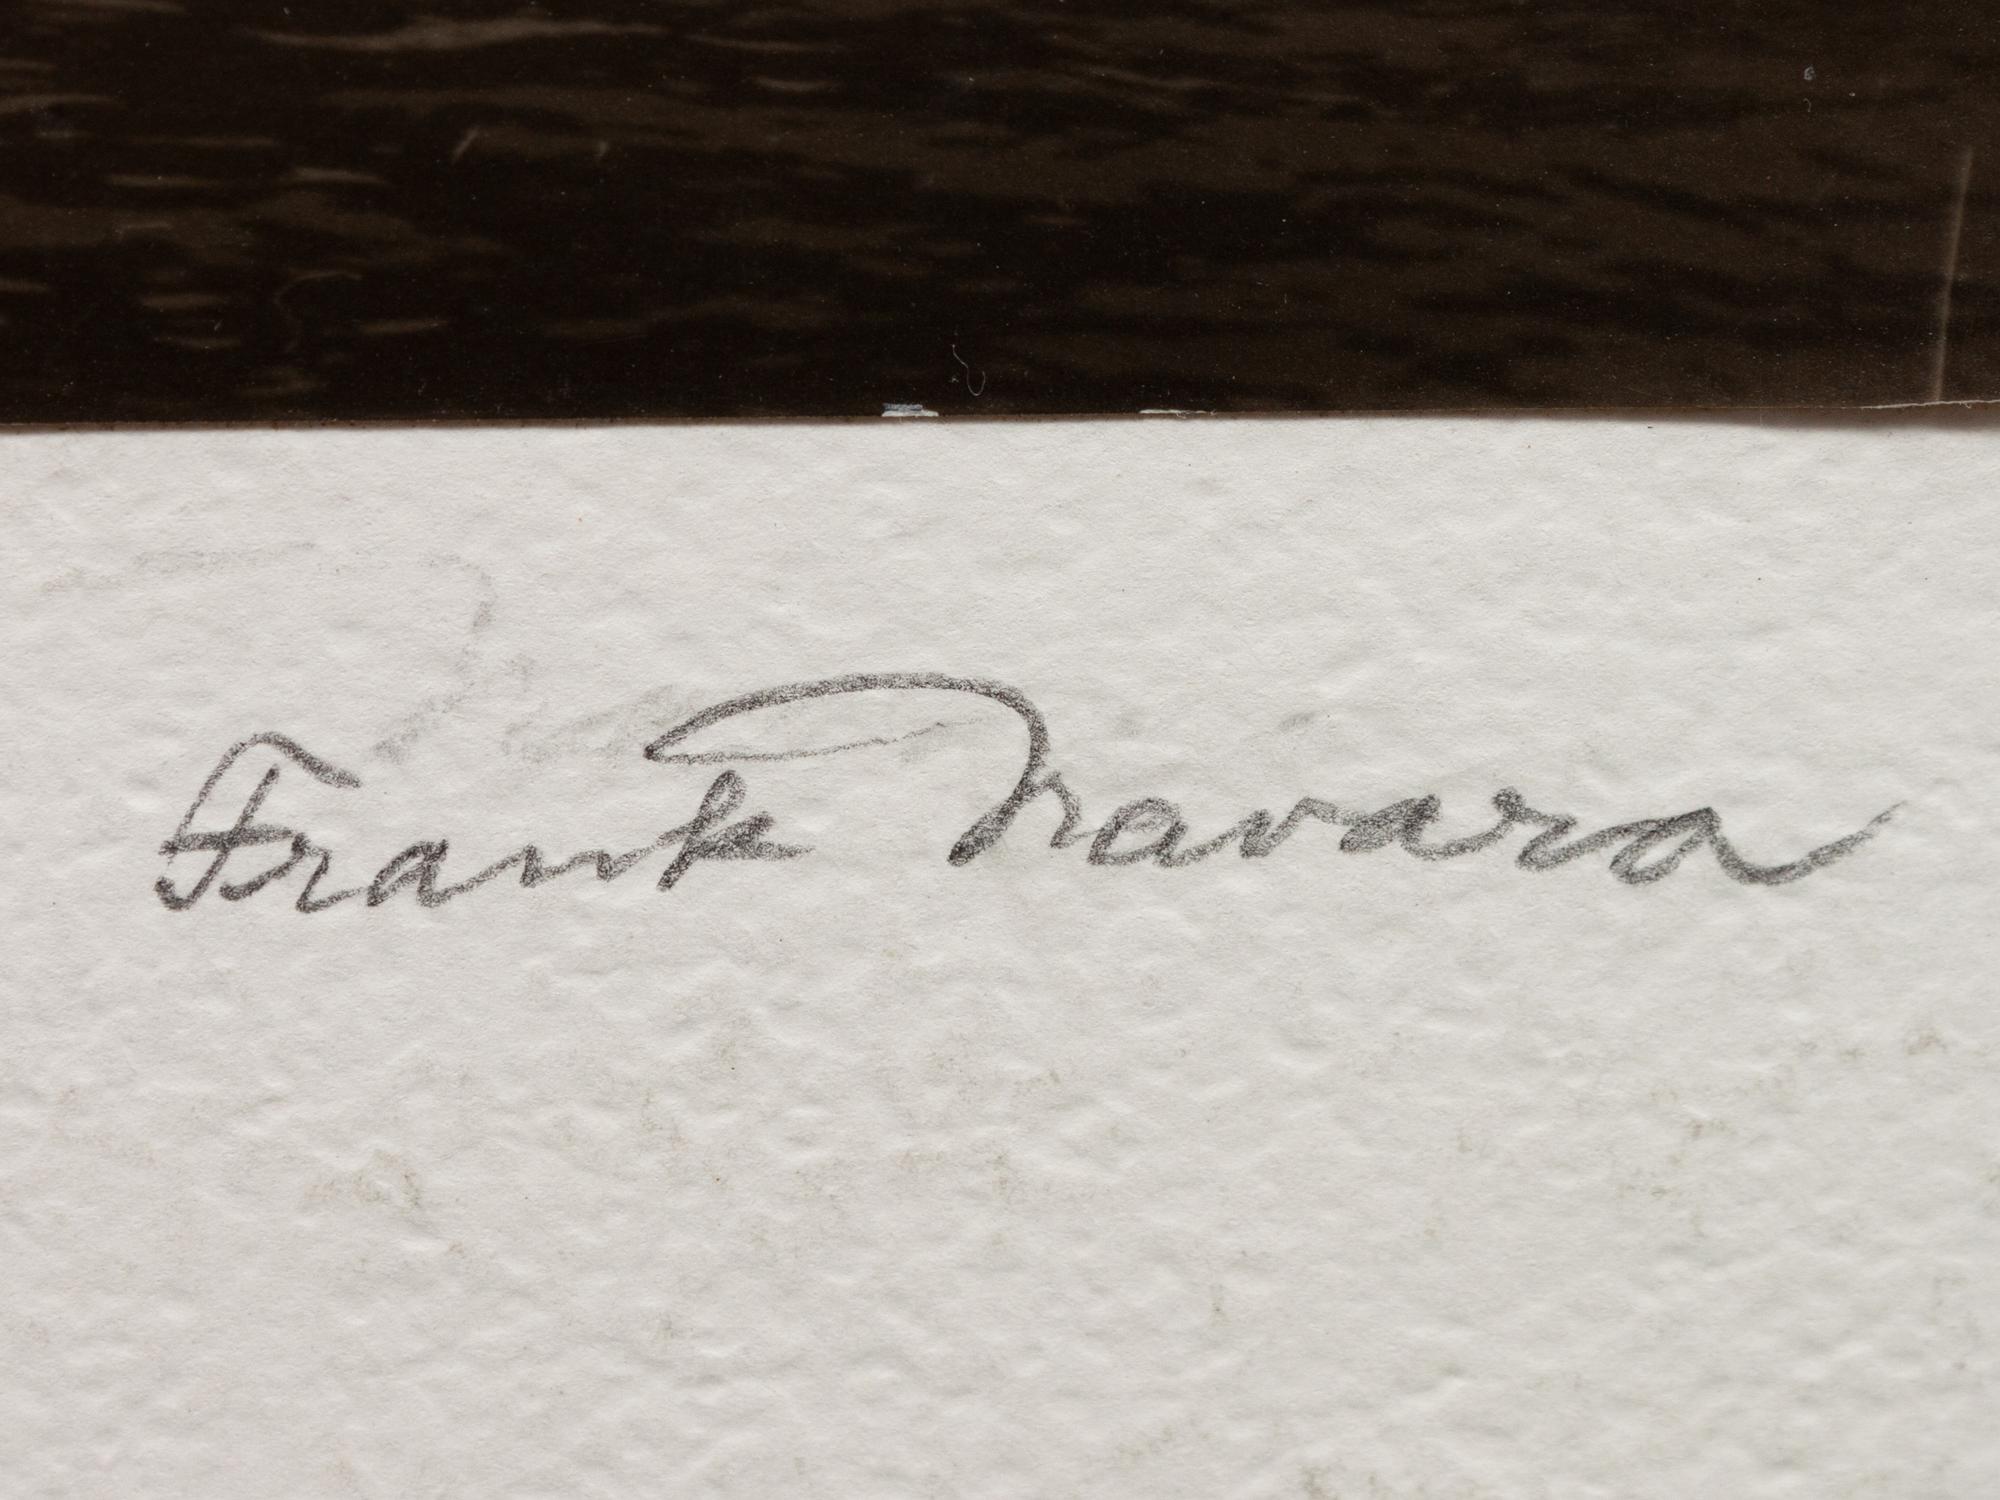 Frank Navara